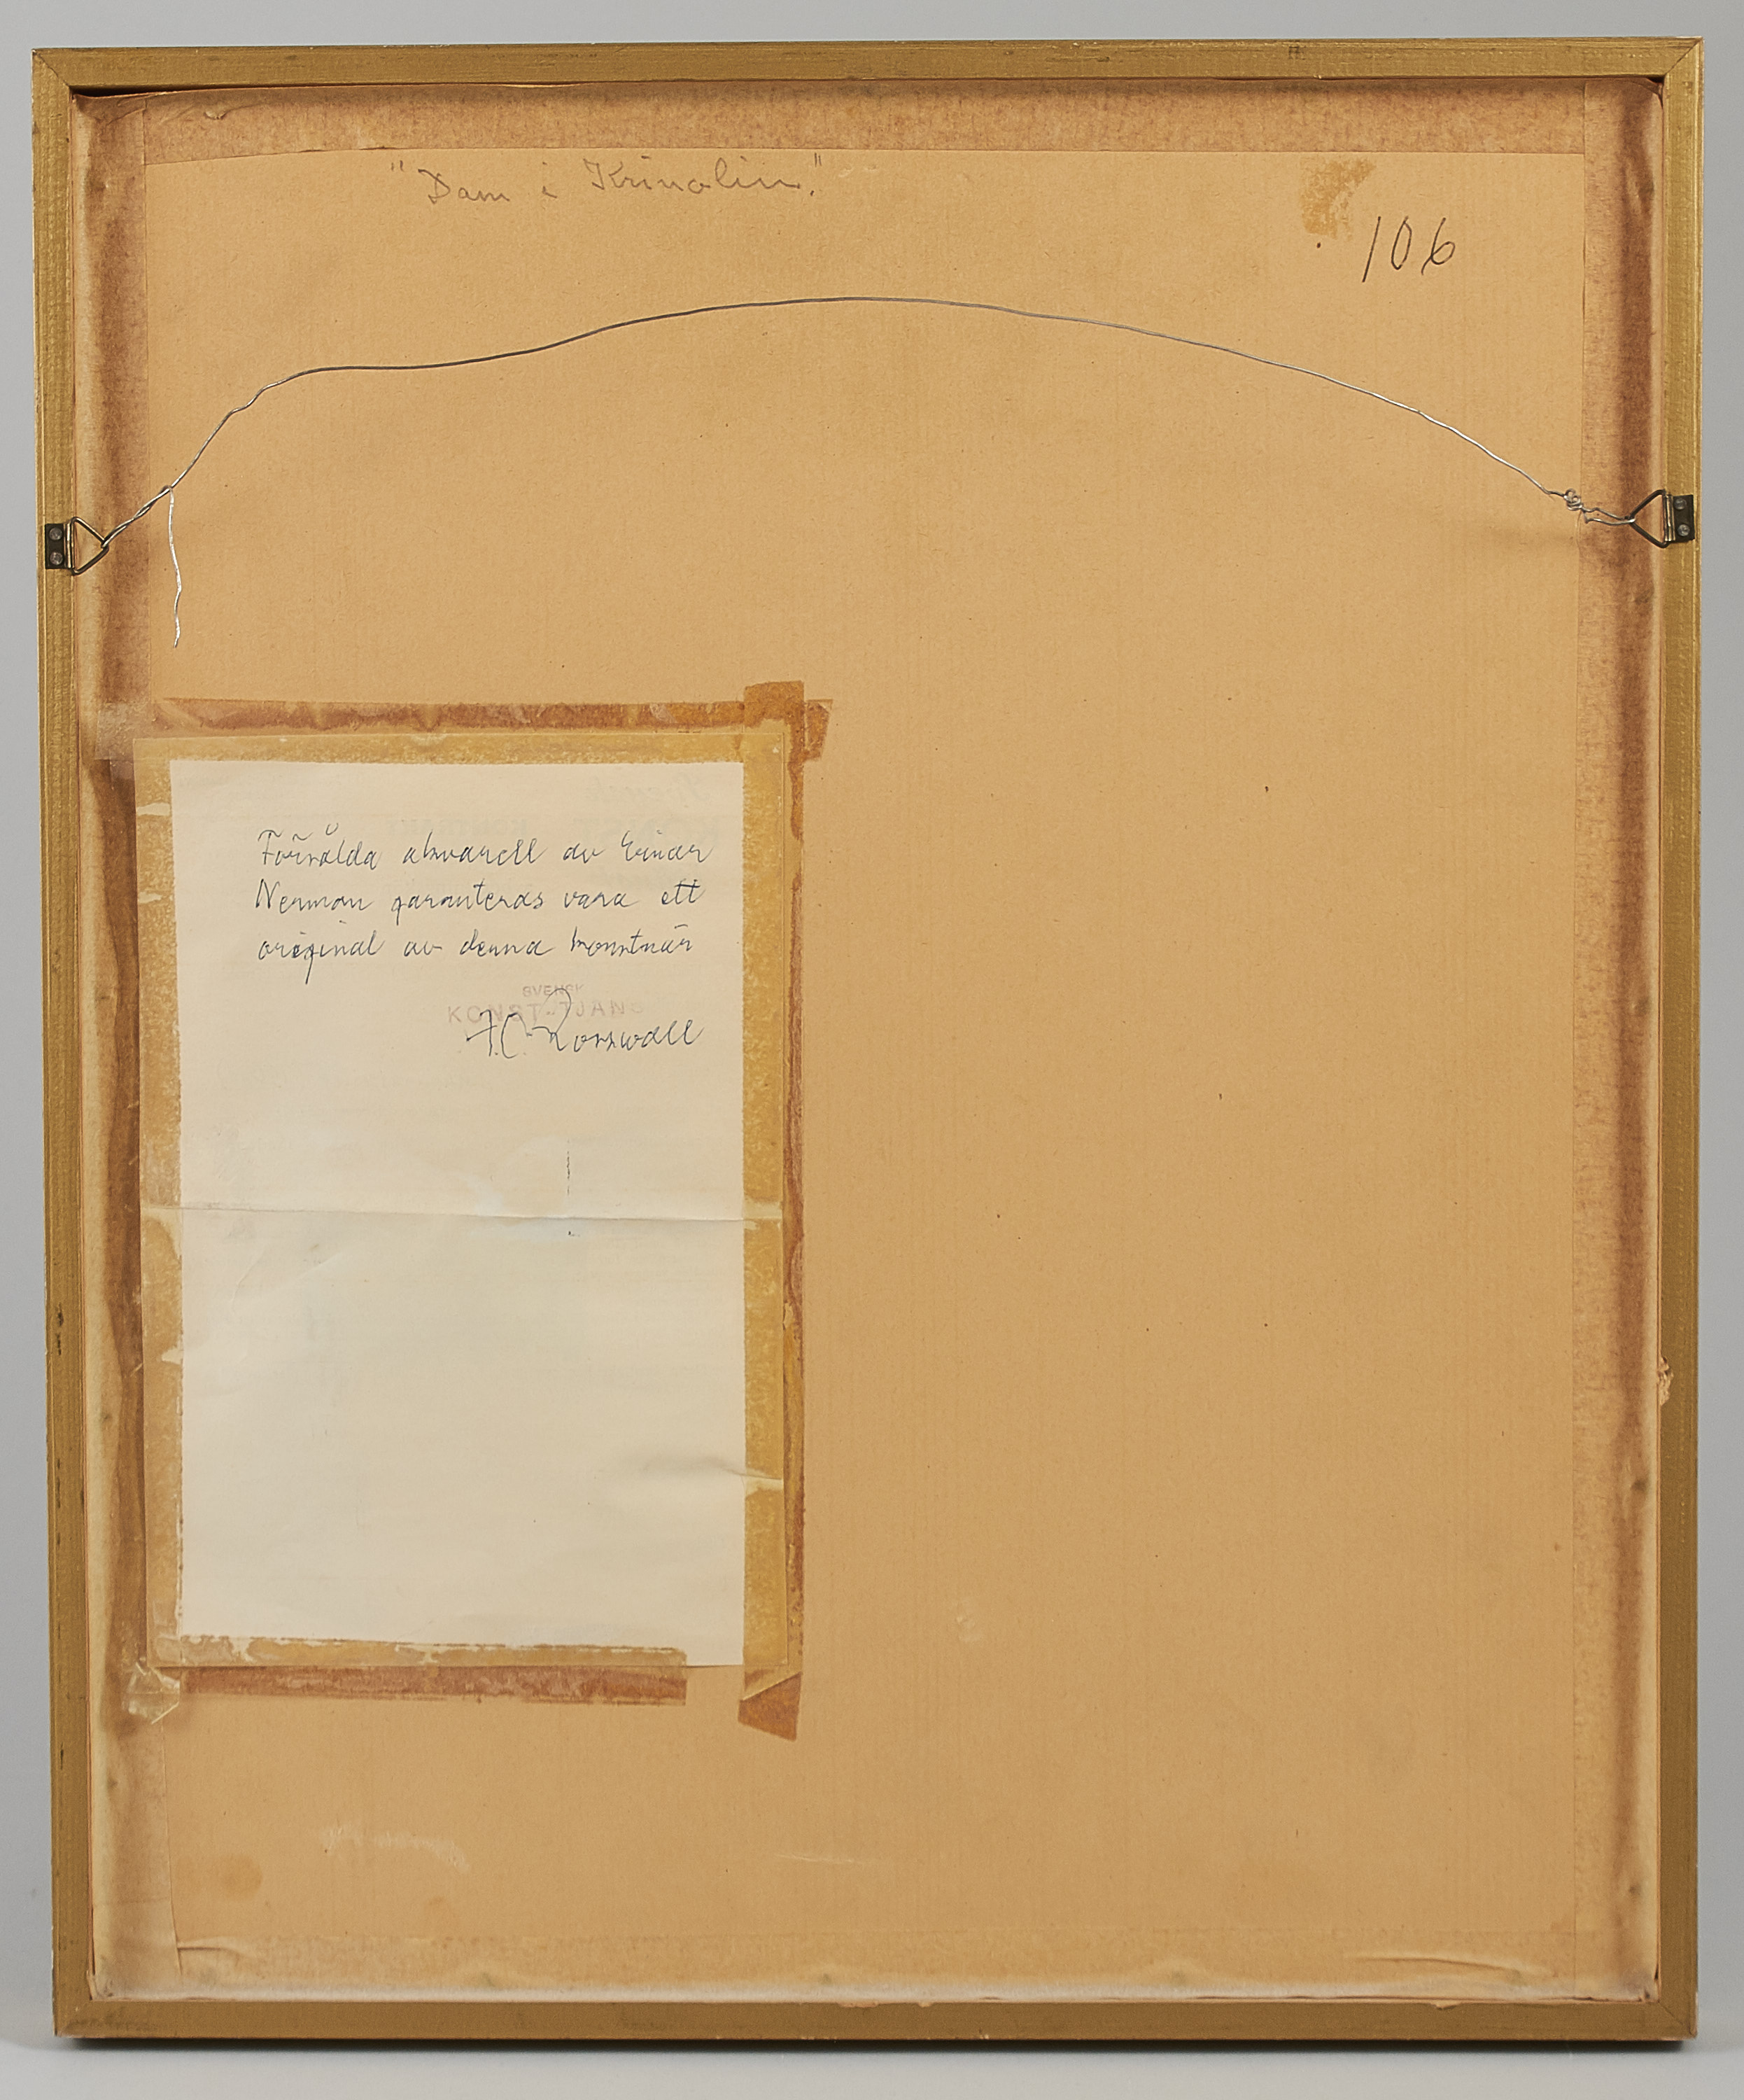 "Dam i Krinolin."
106
Försålda akvarell av Einar
Nerman garanteras vara ett
original av denna konstnär
SVENSK
KONST-TJÄNS